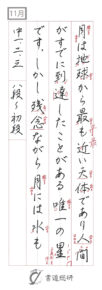 11月
月は地球から最も近い天体であり人間
がすでに到達したことがある唯一の星
です。しかし残念ながら月には水も
中一、三　八段〜初段
書道総研